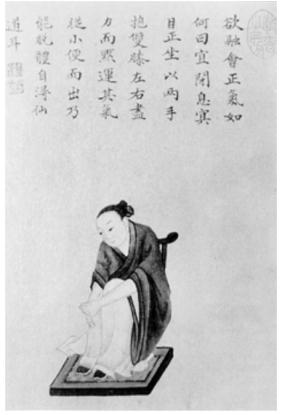 欲融會正氣如
何曰宜閉息冥
目正坐以兩手
抱雙膝左右盡
力而默運其氣
從小便而出乃
能脫體自得仙
道耳